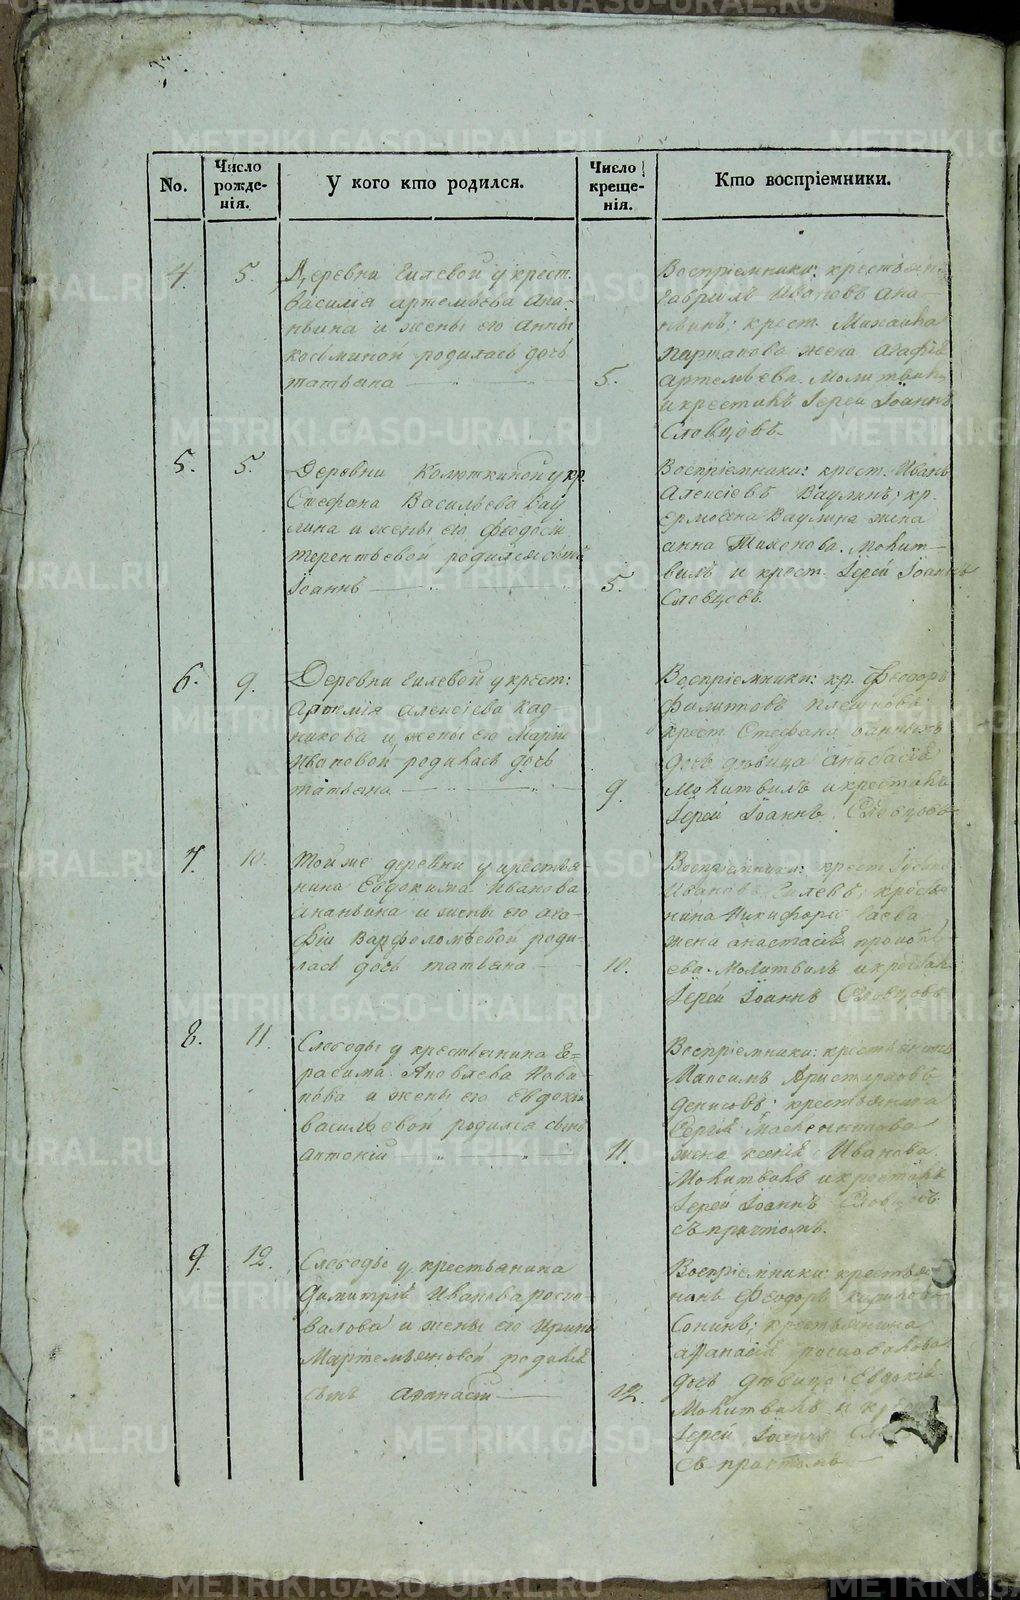 No.
Число
рожде-
нія.
У кого кто родился.
Число
креще-
нія.
Кто воспріемники.
4.
5.
Деревни Гилевой у крест.
Василія Артемьева Ана-
ньина и жены его Анны
Косьминой родилась дочь
Татьяна
5.
Воспріемники: крестьян.
Гаврилъ Ивановъ Ана-
ньинъ; крест. Михаила
жена Агафія
Артемьева. Молитвилъ
и крестилъ Іерей Іоаннъ
Словцовъ.
5.
5.
Деревни Колюткиной у кр.
Стефана Васильева Вау
лина и жены его Феодосіи
Терентьевой родился сынъ
Іоаннъ
5.
Воспріемники: крест. Иванъ
Алексіевъ Ваулинъ; кр.
Ермолая Ваулина жена
Анна Тихонова. Молит-
вилъ и крест. Іерей Іоаннъ
Словцовъ.
6.
9.
Деревни Гилевой у крест:
Артемія Алексіева Кад
никова и жены его Маріи
Ивановой родилась дочь
Татьяна
9.
Воспріемники: кр. Феодоръ
Филиповъ
крест. Стефана
дочь дѣвица Анастасія
Молитвилъ и крестилъ
Іерей Іоаннъ Словцовъ
7.
10.
Той же деревни у крестья
нина Евдокима Иванова
Ананьина и жены его Ага-
фіи Варфоломѣевой роди-
лась дочь Татьяна
10.
Воспріемники: крест.
Ивановъ Гилевъ; кресья
нина Никифора
жена Анастасія Прокопь
ева. Молитвилъ и крестилъ
Іерей Іоаннъ Словцовъ
8.
11.
Слободы у крестьянина Ге-
расима Яковлева Нова-
кова и жены его Евдокіи
Васильевой родился сынъ
Антоній
11.
Воспріемники: крестьянинъ
Максимъ Аристарховъ
Денисовъ; крестьянина
Сергія
жена Ксенія Иванова
Молитвилъ и крестилъ
Іерей Іоаннъ Словцовъ
съ причтомъ.
9.
12.
Слободы у крестьянина
Димитрія Иванова Роспо-
валова и жены его Ирины
Мартемьяновой родился
сынъ Афанасій
12.
Воспріемники: крестья
нинъ Феодоръ Кириловъ
Сонинъ; крестьянина
Афанасія Росповалова
дочь дѣвица Евдокія
Молитвилъ и
Іерей Іоаннъ
съ причтомъ
METRIKI.GASO-URAL.RU